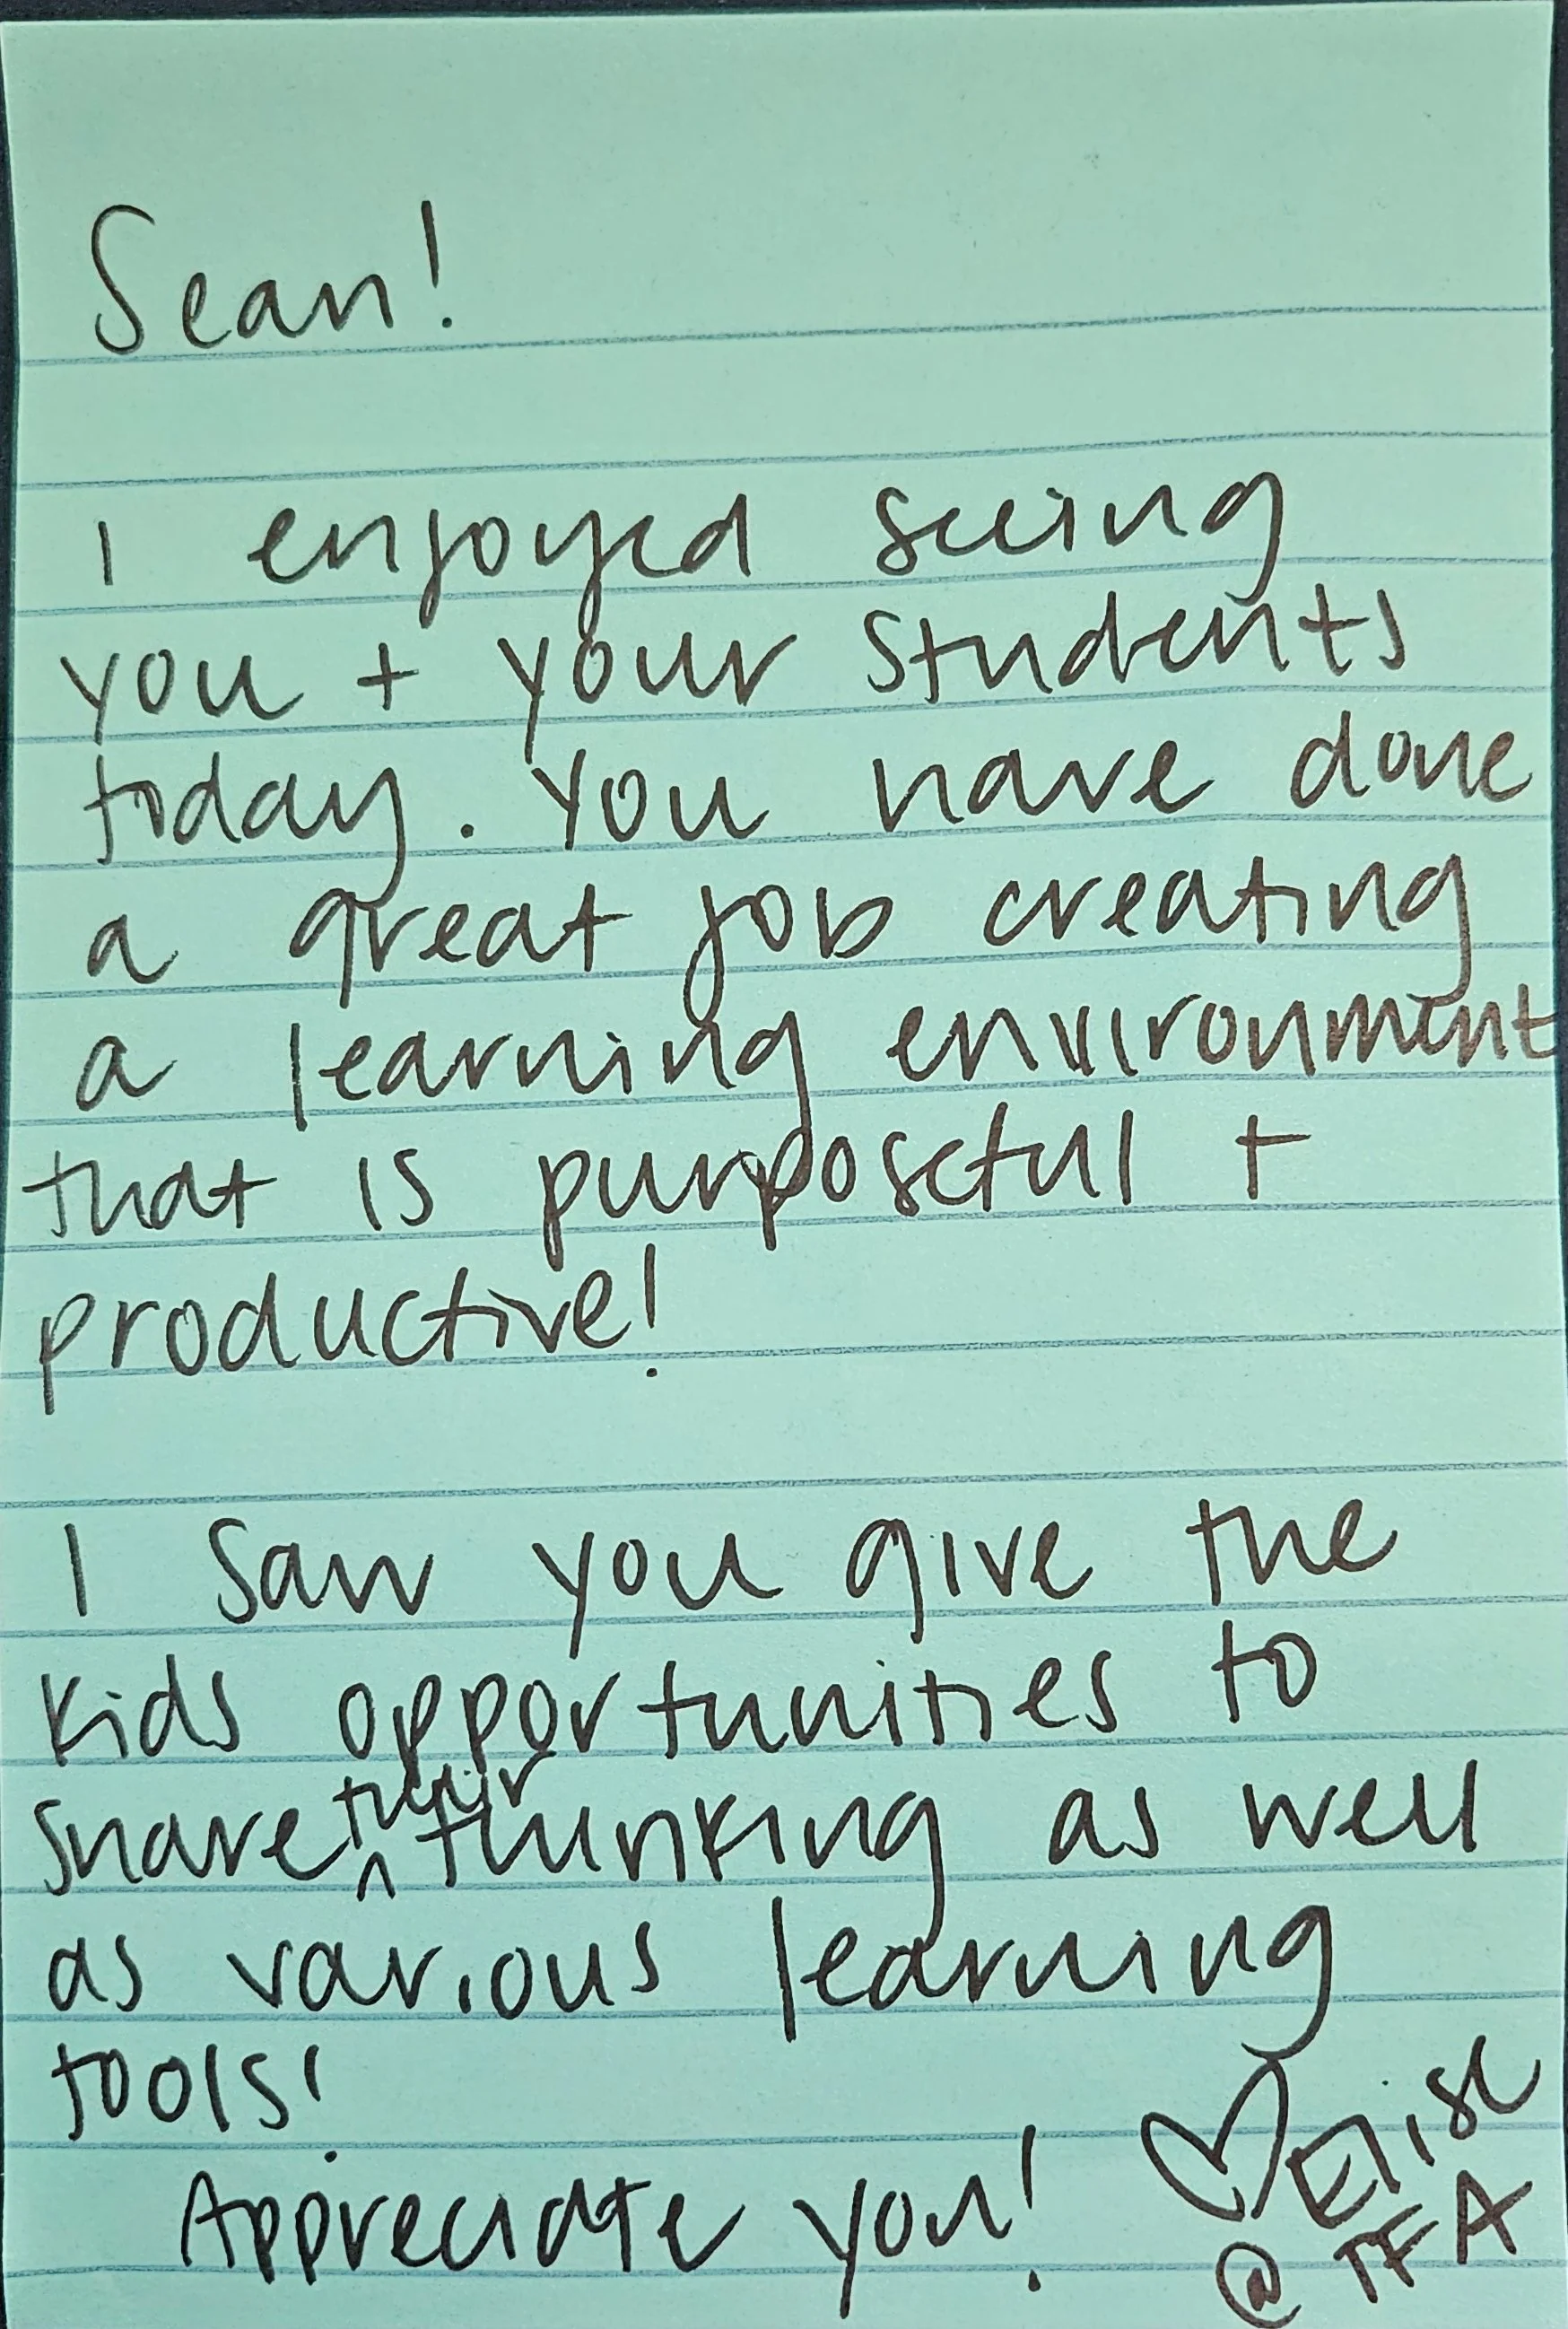 Sean!
I enjoyed seeing
you + your students
today. You have done
a great job creating
a learning environment
that is purposeful +
productive!
I saw you give the
kids opportunities to
share their thinking as well
as various learning
tools!
Appreciate you! ♡ Elise
@ TFA